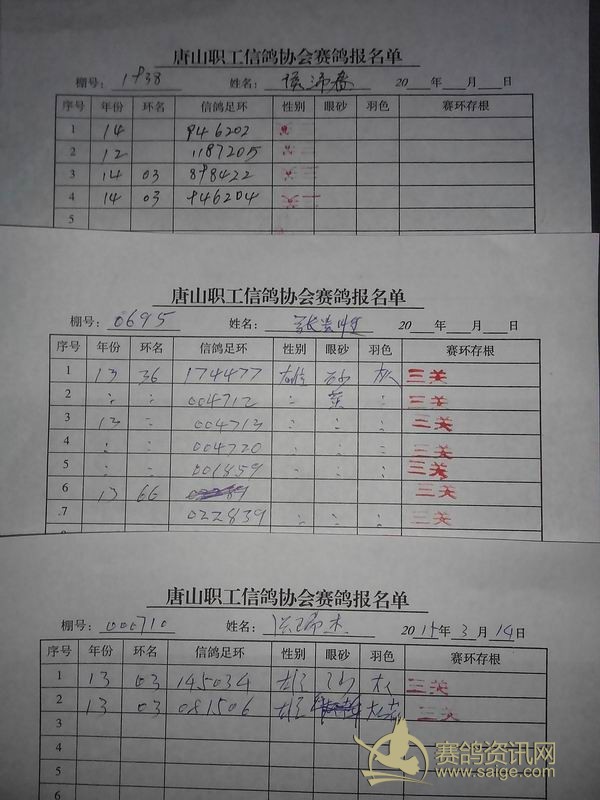 唐山职工信鸽协会赛鸽报名单
棚号: 1938 姓名: 20 年 月 日
序号 年份 环名 信鸽足环 性别 眼砂 羽色 赛环存根
1 14 946202
2 12 1187205
3 14 03 898422 三关
4 14 03 946204 三关
5
唐山职工信鸽协会赛鸽报名单
棚号: 0695 姓名: 张 20 年 月 日
序号 年份 环名 信鸽足环 性别 眼砂 羽色 赛环存根
1 13 36 174477 雄 砂 灰 三关
2 : : 004712 : 黄 : 三关
3 13 : 004713 : : : 三关
4 : : 004720 : : : 三关
5 : : 001859 : : : 三关
6 13 66 三关
7 022839 : : : 三关
唐山职工信鸽协会赛鸽报名单
棚号: 000710 姓名: 洪瑞杰 2015年 3 月 14 日
序号 年份 环名 信鸽足环 性别 眼砂 羽色 赛环存根
1 13 03 145034 雄 砂 灰 三关
2 13 03 081506 雄 三关
3
4
5
6
赛鸽资讯网
www.saige.com